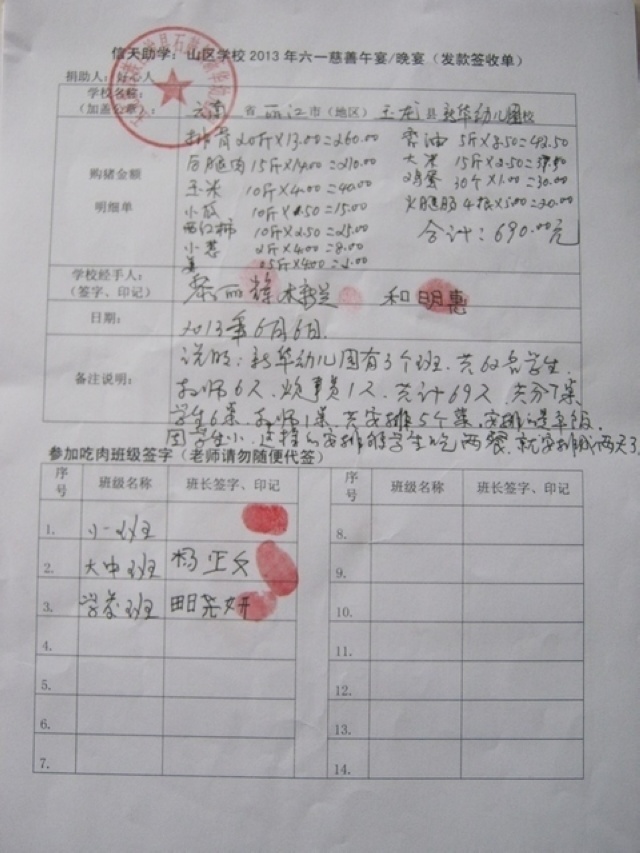 信天助学：山区学校2013年六一慈善午宴/晚宴（发款签收单）
捐助人：好心人
学校名称：
（加盖公章）：
云南 省 丽江 市（地区） 玉龙 县 新华幼儿园 校
购猪金额
明细单
排骨20斤×13.00=260.00
后腿肉15斤×14.00=210.00
玉米 10斤×4.00=40.00
小瓜 10斤×1.50=15.00
西红柿 10斤×2.50=25.00
小葱 2斤×4.00=8.00
姜
香油 5斤×8.50=42.50
大米 15斤×2.50=37.50
鸡蛋 30个×1.00=30.00
火腿肠 4根×5.00=20.00
合计：690.00元
学校经手人：
（签字、印记）
和明惠
日期：
2013年6月6日
备注说明：
说明：新华幼儿园有3个班，共62名学生，
教师6人，炊事员1人，共计69人，共分7桌
学生6桌，教师1桌，共安排5个菜，安排的是午饭。
因学生小，这样的安排够学生吃两餐，就安排成两天了
参加吃肉班级签字（老师请勿随便代签）
序号 班级名称 班长签字、印记 序号 班级名称 班长签字、印记
1. 小一班 8.
2. 大中班 杨正文 9.
3. 学前班 田尧妍 10.
4. 11.
5. 12.
6. 13.
7. 14.